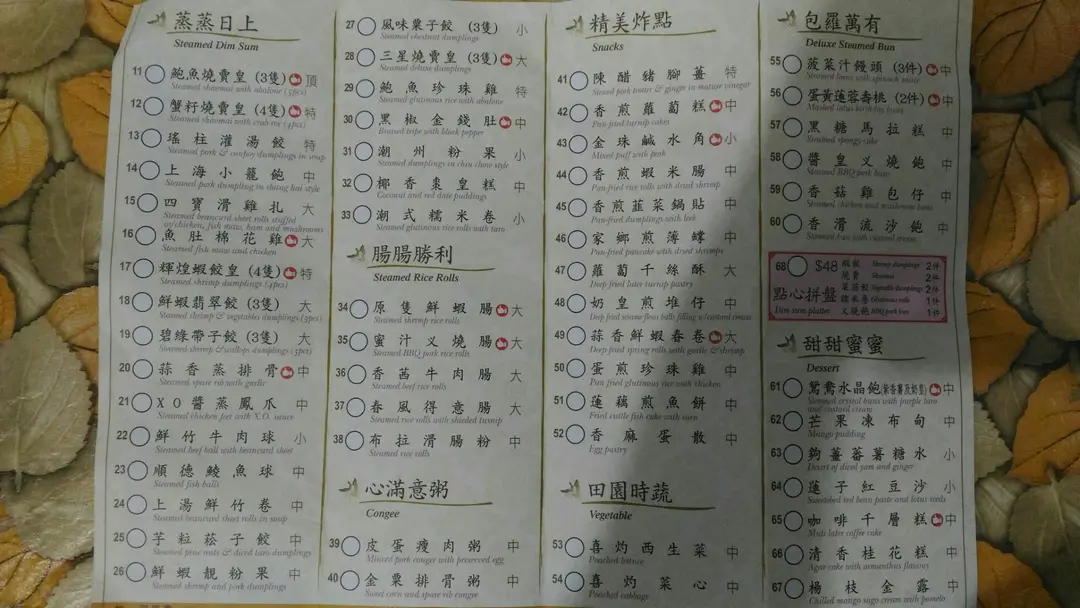 蒸蒸日上
Steamed Dim Sum
11 鮑魚燒賣皇 (3隻) 頂
Steamed shaomai with abalone (3pcs)
12 蟹籽燒賣皇 (4隻) 特
Steamed shaomai with crab roe (4pcs)
13 瑤柱灌湯餃 特
Steamed pork & conpoy dumplings in soup
14 上海小籠飽 中
Steamed pork dumpling in shang hai style
15 四寶滑雞扎 大
Steamed beancurd sheet rolls stuffed
w/chicken, fish maw, ham and mushrooms
16 魚肚棉花雞 大
Steamed fish maw and chicken
17 輝煌蝦餃皇 (4隻) 特
Steamed shrimp dumplings (4pcs)
18 鮮蝦翡翠餃 (3隻) 大
Steamed shrimp & vegetables dumplings (3pcs)
19 碧綠帶子餃 (3隻) 大
Steamed shrimp & scallops dumplings (3pcs)
20 蒜香蒸排骨 中
Steamed spare rib with garlic
21 XO醬蒸鳳爪 中
Steamed chicken feet with X.O. sauce
22 鮮竹牛肉球 小
Steamed beef ball with beancurd sheet
23 順德鯪魚球 中
Steamed fish balls
24 上湯鮮竹卷 中
Steamed beancurd sheet rolls in soup
25 芋粒菘子餃 中
Steamed pine nuts & diced taro dumplings
26 鮮蝦靚粉果 中
Steamed shrimp and pork dumplings
27 風味粟子餃 (3隻) 小
Steamed chestnut dumplings
28 三星燒賣皇 (3隻) 大
Steamed deluxe dumplings
29 鮑魚珍珠雞 特
Steamed glutinous rice with abalone
30 黑椒金錢肚 中
Braised tripe with black pepper
31 潮州粉果 小
Steamed dumplings in chiu chow style
32 椰香棗皇糕 中
Coconut and red date puddings
33 潮式糯米卷 小
Steamed glutinous rice rolls with taro
腸腸勝利
Steamed Rice Rolls
34 原隻鮮蝦腸 大
Steamed shrimp rice rolls
35 蜜汁叉燒腸 大
Steamed BBQ pork rice rolls
36 香茜牛肉腸 大
Steamed beef rice rolls
37 春風得意腸 大
Steamed rice rolls with shredded turnip
38 布拉滑腸粉 中
Steamed rice rolls
心滿意粥
Congee
39 皮蛋瘦肉粥 中
Minced pork congee with preserved egg
40 金粟排骨粥 中
Sweet corn and spare rib congee
精美炸點
Snacks
41 陳醋豬腳薑 特
Stewed pork trotter & ginger in mature vinegar
42 香煎蘿蔔糕 中
Pan-fried turnip cakes
43 金珠鹹水角 小
Mixed puff with pork
44 香煎蝦米腸 中
Pan-fried rice rolls with dried shrimp
45 香煎韮菜鍋貼 中
Pan-fried dumplings with leek
46 家鄉煎薄罉 中
Pan-fried pancake with dried shrimps
47 蘿蔔千絲酥 大
Deep fried later turnip pastry
48 奶皇煎堆仔 中
Deep fried sesame flour balls filling w/custard cream
49 蒜香鮮蝦春卷 大
Deep fried spring rolls with garlic & shrimp
50 蛋煎珍珠雞 中
Pan fried glutinous rice with chicken
51 蓮藕煎魚餅 中
Fried cuttle fish cake with corn
52 香麻蛋散 中
Egg pastry
田園時蔬
Vegetable
53 喜灼西生菜 中
Poached lettuce
54 喜灼菜心 中
Poached cabbage
包羅萬有
Deluxe Steamed Bun
55 菠菜汁饅頭 (3件) 中
Steamed buns with spinach juice
56 蛋黃蓮蓉壽桃 (2件) 中
Mashed lotus birthday buns
57 黑糖馬拉糕 中
Steamed sponge cake
58 醬皇叉燒飽 中
Steamed BBQ pork buns
59 香菇雞包仔 中
Steamed chicken and mushroom buns
60 香滑流沙飽 中
Steamed bun with custard cream
68 $48
點心拼盤
Dim sum platter
蝦餃 Shrimp dumplings 2件
燒賣 Shaomai 2件
菜苗餃 Vegetable dumplings 2件
糯米卷 Glutinous rolls 1件
叉燒飽 BBQ pork bun 1件
甜甜蜜蜜
Dessert
61 鴛鴦水晶飽(紫香薯及奶皇) 中
Steamed crystal buns with purple taro
and custard cream
62 芒果凍布甸 中
Mango pudding
63 鉤薑蕃薯糖水 小
Desert of diced yam and ginger
64 蓮子紅豆沙 小
Sweetened red bean paste and lotus seeds
65 咖啡千層糕 中
Multi later coffee cake
66 清香桂花糕 中
Agar cake with osmanthus flavour
67 楊枝金露 中
Chilled mango sago cream with pomelo